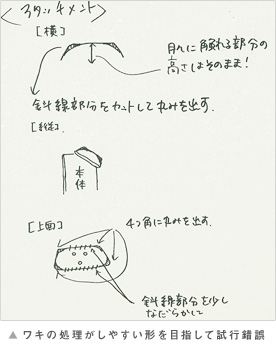 <アタッチメント>
[横]
肌に触れる部分の
高さはそのまま!
斜線部分をカットして丸みを出す.
[縦].
本体
[上面]
4つ角に丸みを出す.
斜線部分を少し
なだらかに
▲ ワキの処理がしやすい形を目指して試行錯誤